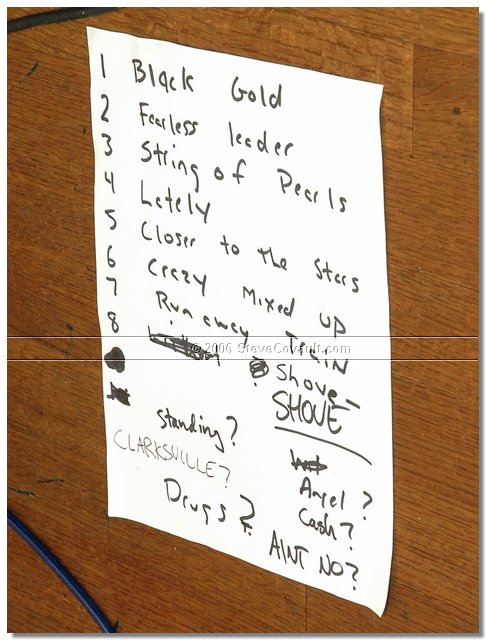 1 Black Gold
2 Fearless leader
3 String of Pearls
4 Lately
5 Closer to the Stars
6 Crazy Mixed Up
7 Runaway TRAIN
8 Shove-
SHOVE
© 2006 SteveCovault.com
standing?
CLARKSVILLE?
Drugs?
Angel?
Cash?
AINT NO?